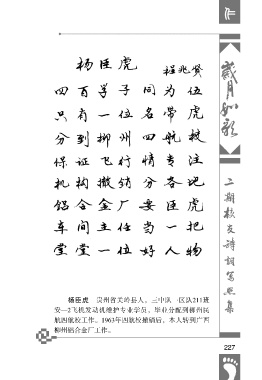 作
岁月如歌
二期校友诗词写照集
杨臣虎 程兆贤
四百学子同为伍
只有一位名带虎
分到柳州四航校
保证飞行情专注
机构撤销分各地
铝合金厂安臣虎
车间主任当一把
堂堂一位好人物
杨臣虎 贵州省关岭县人。三中队一区队211班
安—2飞机发动机维护专业学员。毕业分配到柳州民
航四航校工作。1963年四航校撤销后，本人转到广西
柳州铝合金厂工作。
227